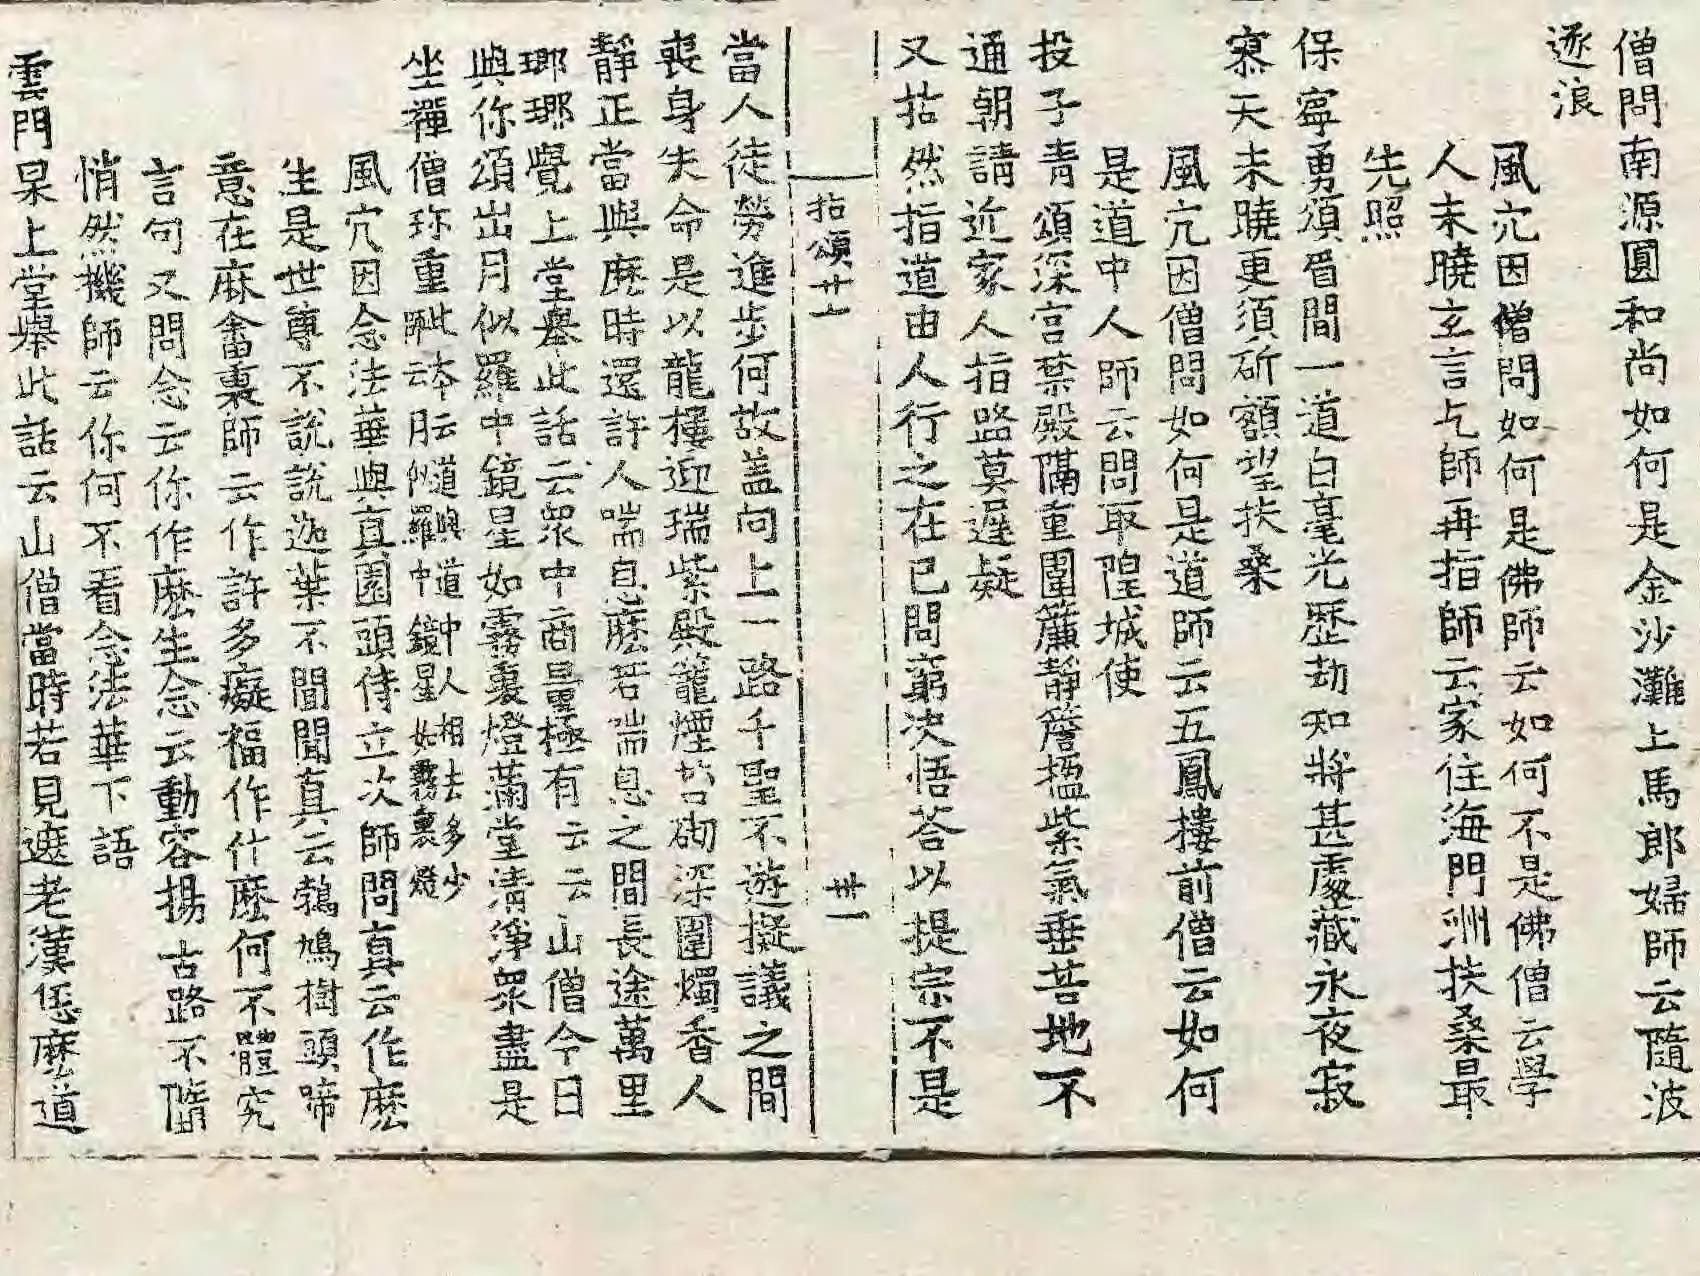 僧問南源圓和尚如何是金沙灘上馬郎婦師云隨波
逐浪
風穴因僧問如何是佛師云如何不是佛僧云學
人未曉玄言乞師再指師云家住海門洲扶桑最
先照
保寧勇頌眉間一道白毫光歷劫知將甚處藏永夜寂
寥天未曉更須斫額望扶桑
風穴因僧問如何是道師云五鳳樓前僧云如何
是道中人師云問取隍城使
投子青頌深宮禁殿隔重圍簾靜簷楹紫氣垂苔地不
通朝請近家人指路莫遲疑
又拈然指道由人行之在已問窮決悟荅以提宗不是
拈頌廿七
卅一
當人徒勞進步何故盖向上一路千聖不遊擬議之間
喪身失命是以龍樓迎瑞紫殿籠煙苔砌深圍燭香人
靜正當與麽時還許人喘息麽若喘息之間長途萬里
瑯瑘覺上堂舉此話云眾中商量極有云云山僧今日
與你頌出月似羅中鏡星如霧裏燈滿堂清淨眾盡是
坐禪僧珎重此本云道與道中人相去多少師云月似羅中鏡星如霧裏燈
風穴因念法華與真園頭侍立次師問真云作麽
生是世尊不說說迦葉不聞聞真云鵓鳩樹頭啼
意在麻畬裏師云作許多癡福作什麽何不體究
言句又問念云你作麽生念云動容揚古路不墮
悄然機師云你何不看念法華下語
雲門杲上堂舉此話云山僧當時若見遮老漢恁麽道